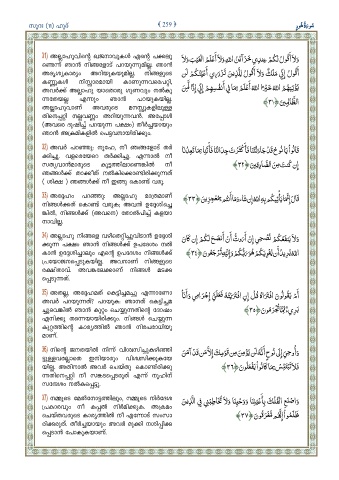 സൂറ: (11) ഹൂദ് ﴾ 259 ﴿ سُورَةُ هُودٍ
31) അല്ലാഹുവിന്റെ ഖജനാവുകൾ എന്റെ പക്കലു
ണ്ടെന്ന് ഞാൻ നിങ്ങളോട് പറയുന്നുമില്ല. ഞാൻ
അദൃശ്യകാര്യം അറിയുകയുമില്ല. നിങ്ങളുടെ
കണ്ണുകൾ നിസ്സാരമായി കാണുന്നവരെപറ്റി,
അവർക്ക് അല്ലാഹു യാതൊരു ഗുണവും നൽകു
ന്നതേയല്ല എന്നും ഞാൻ പറയുകയില്ല.
അല്ലാഹുവാണ് അവരുടെ മനസ്സുകളിലുള്ള
തിനെപ്പറ്റി നല്ലവണ്ണം അറിയുന്നവൻ. അപ്പോൾ
(അവരെ ദുഷിച്ച് പറയുന്ന പക്ഷം) തീർച്ചയായും
ഞാൻ അക്രമികളിൽ പെട്ടവനായിരിക്കും.
وَلَا أَقُولُ لَكُمْ عِندِي خَزَائِنُ اللَّهِ وَلَا أَعْلَمُ الْغَيْبَ وَلَا
أَقُولُ إِنِّي مَلَكٌ وَلَا أَقُولُ لِلَّذِينَ تَزْدَرِي أَعْيُنُكُمْ لَن
يُؤْتِيَهُمُ اللَّهُ خَيْرًا اللَّهُ أَعْلَمُ بِمَا فِي أَنفُسِهِمْ إِنِّي إِذًا لَّمِنَ
الظَّالِمِينَ ﴿٣١﴾
32) അവർ പറഞ്ഞു: നൂഹേ, നീ ഞങ്ങളോട് തർ
ക്കിച്ചു. വളരെയേറെ തർക്കിച്ചു. എന്നാൽ നീ
സത്യവാൻമാരുടെ കൂട്ടത്തിലാണെങ്കിൽ നീ
ഞങ്ങൾക്ക് താക്കീത് നൽകിക്കൊണ്ടിരിക്കുന്നത്
( ശിക്ഷ ) ഞങ്ങൾക്ക് നീ ഇങ്ങു കൊണ്ട് വരൂ.
قَالُوا يَا نُوحُ قَدْ جَادَلْتَنَا فَأَكْثَرْتَ جِدَالَنَا فَأْتِنَا بِمَا تَعِدُنَا
إِن كُنتَ مِنَ الصَّادِقِينَ ﴿٣٢﴾
33) അദ്ദേഹം പറഞ്ഞു: അല്ലാഹു മാത്രമാണ്
നിങ്ങൾക്കത് കൊണ്ട് വരുക; അവൻ ഉദ്ദേശിച്ചെ
ങ്കിൽ. നിങ്ങൾക്ക് (അവനെ) തോൽപിച്ച് കളയാ
നാവില്ല.
قَالَ إِنَّمَا يَأْتِيكُم بِهِ اللَّهُ إِن شَاءَ وَمَا أَنتُم بِمُعْجِزِينَ ﴿٣٣﴾
34) അല്ലാഹു നിങ്ങളെ വഴിതെറ്റിച്ചുവിടാൻ ഉദ്ദേശി
ക്കുന്ന പക്ഷം ഞാൻ നിങ്ങൾക്ക് ഉപദേശം നൽ
കാൻ ഉദ്ദേശിച്ചാലും എന്റെ ഉപദേശം നിങ്ങൾക്ക്
പ്രയോജനപ്പെടുകയില്ല. അവനാണ് നിങ്ങളുടെ
രക്ഷിതാവ്. അവങ്കലേക്കാണ് നിങ്ങൾ മടക്ക
പ്പെടുന്നത്.
وَلَا يَنفَعُكُمْ نُصْحِي إِنْ أَرَدتُّ أَنْ أَنصَحَ لَكُمْ إِن كَانَ
اللَّهُ يُرِيدُ أَن يُغْوِيَكُمْ هُوَ رَبُّكُمْ وَإِلَيْهِ تُرْجَعُونَ ﴿٣٤﴾
35) അതല്ല, അദ്ദേഹമത് കെട്ടിച്ചമച്ചു എന്നാണോ
അവർ പറയുന്നത്? പറയുക: ഞാനത് കെട്ടിച്ചമ
ച്ചുവെങ്കിൽ ഞാൻ കുറ്റം ചെയ്യുന്നതിന്റെ ദോഷം
എനിക്കു തന്നെയായിരിക്കും. നിങ്ങൾ ചെയ്യുന്ന
കുറ്റത്തിന്റെ കാര്യത്തിൽ ഞാൻ നിരപരാധിയു
മാണ്.
أَمْ يَقُولُونَ افْتَرَاهُ قُلْ إِنِ افْتَرَيْتُهُ فَعَلَيَّ إِجْرَامِي وَأَنَا
بَرِيءٌ مِّمَّا تُجْرِمُونَ ﴿٣٥﴾
36) നിന്റെ ജനതയിൽ നിന്ന് വിശ്വസിച്ചുകഴിഞ്ഞി
ട്ടുള്ളവരല്ലാതെ ഇനിയാരും വിശ്വസിക്കുകയേ
യില്ല. അതിനാൽ അവർ ചെയ്തു കൊണ്ടിരിക്കു
ന്നതിനെപ്പറ്റി നീ സങ്കടപ്പെടരുത് എന്ന് നൂഹിന്
സന്ദേശം നൽകപ്പെട്ടു.
وَأُوحِيَ إِلَىٰ نُوحٍ أَنَّهُ لَن يُؤْمِنَ مِن قَوْمِكَ إِلَّا مَن قَدْ آمَنَ
فَلَا تَبْتَئِسْ بِمَا كَانُوا يَفْعَلُونَ ﴿٣٦﴾
37) നമ്മുടെ മേൽനോട്ടത്തിലും, നമ്മുടെ നിർദേശ
പ്രകാരവും നീ കപ്പൽ നിർമിക്കുക. അക്രമം
ചെയ്തവരുടെ കാര്യത്തിൽ നീ എന്നോട് സംസാ
രിക്കരുത്. തീർച്ചയായും അവർ മുക്കി നശിപ്പിക്ക
പ്പെടാൻ പോകുകയാണ്.
وَاصْنَعِ الْفُلْكَ بِأَعْيُنِنَا وَوَحْيِنَا وَلَا تُخَاطِبْنِي فِي الَّذِينَ
ظَلَمُوا إِنَّهُم مُّغْرَقُونَ ﴿٣٧﴾